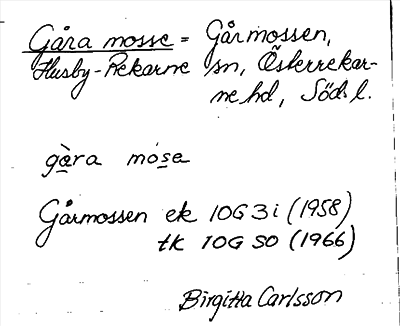 Gåra mosse = Gårmossen,
Husby-Rekarne sn, Österrekar-
ne hd, Södl.
gàra móse
Gårmossen ek 10G 3i (1958)
tk 10G SO (1966)
Birgitta Carlsson